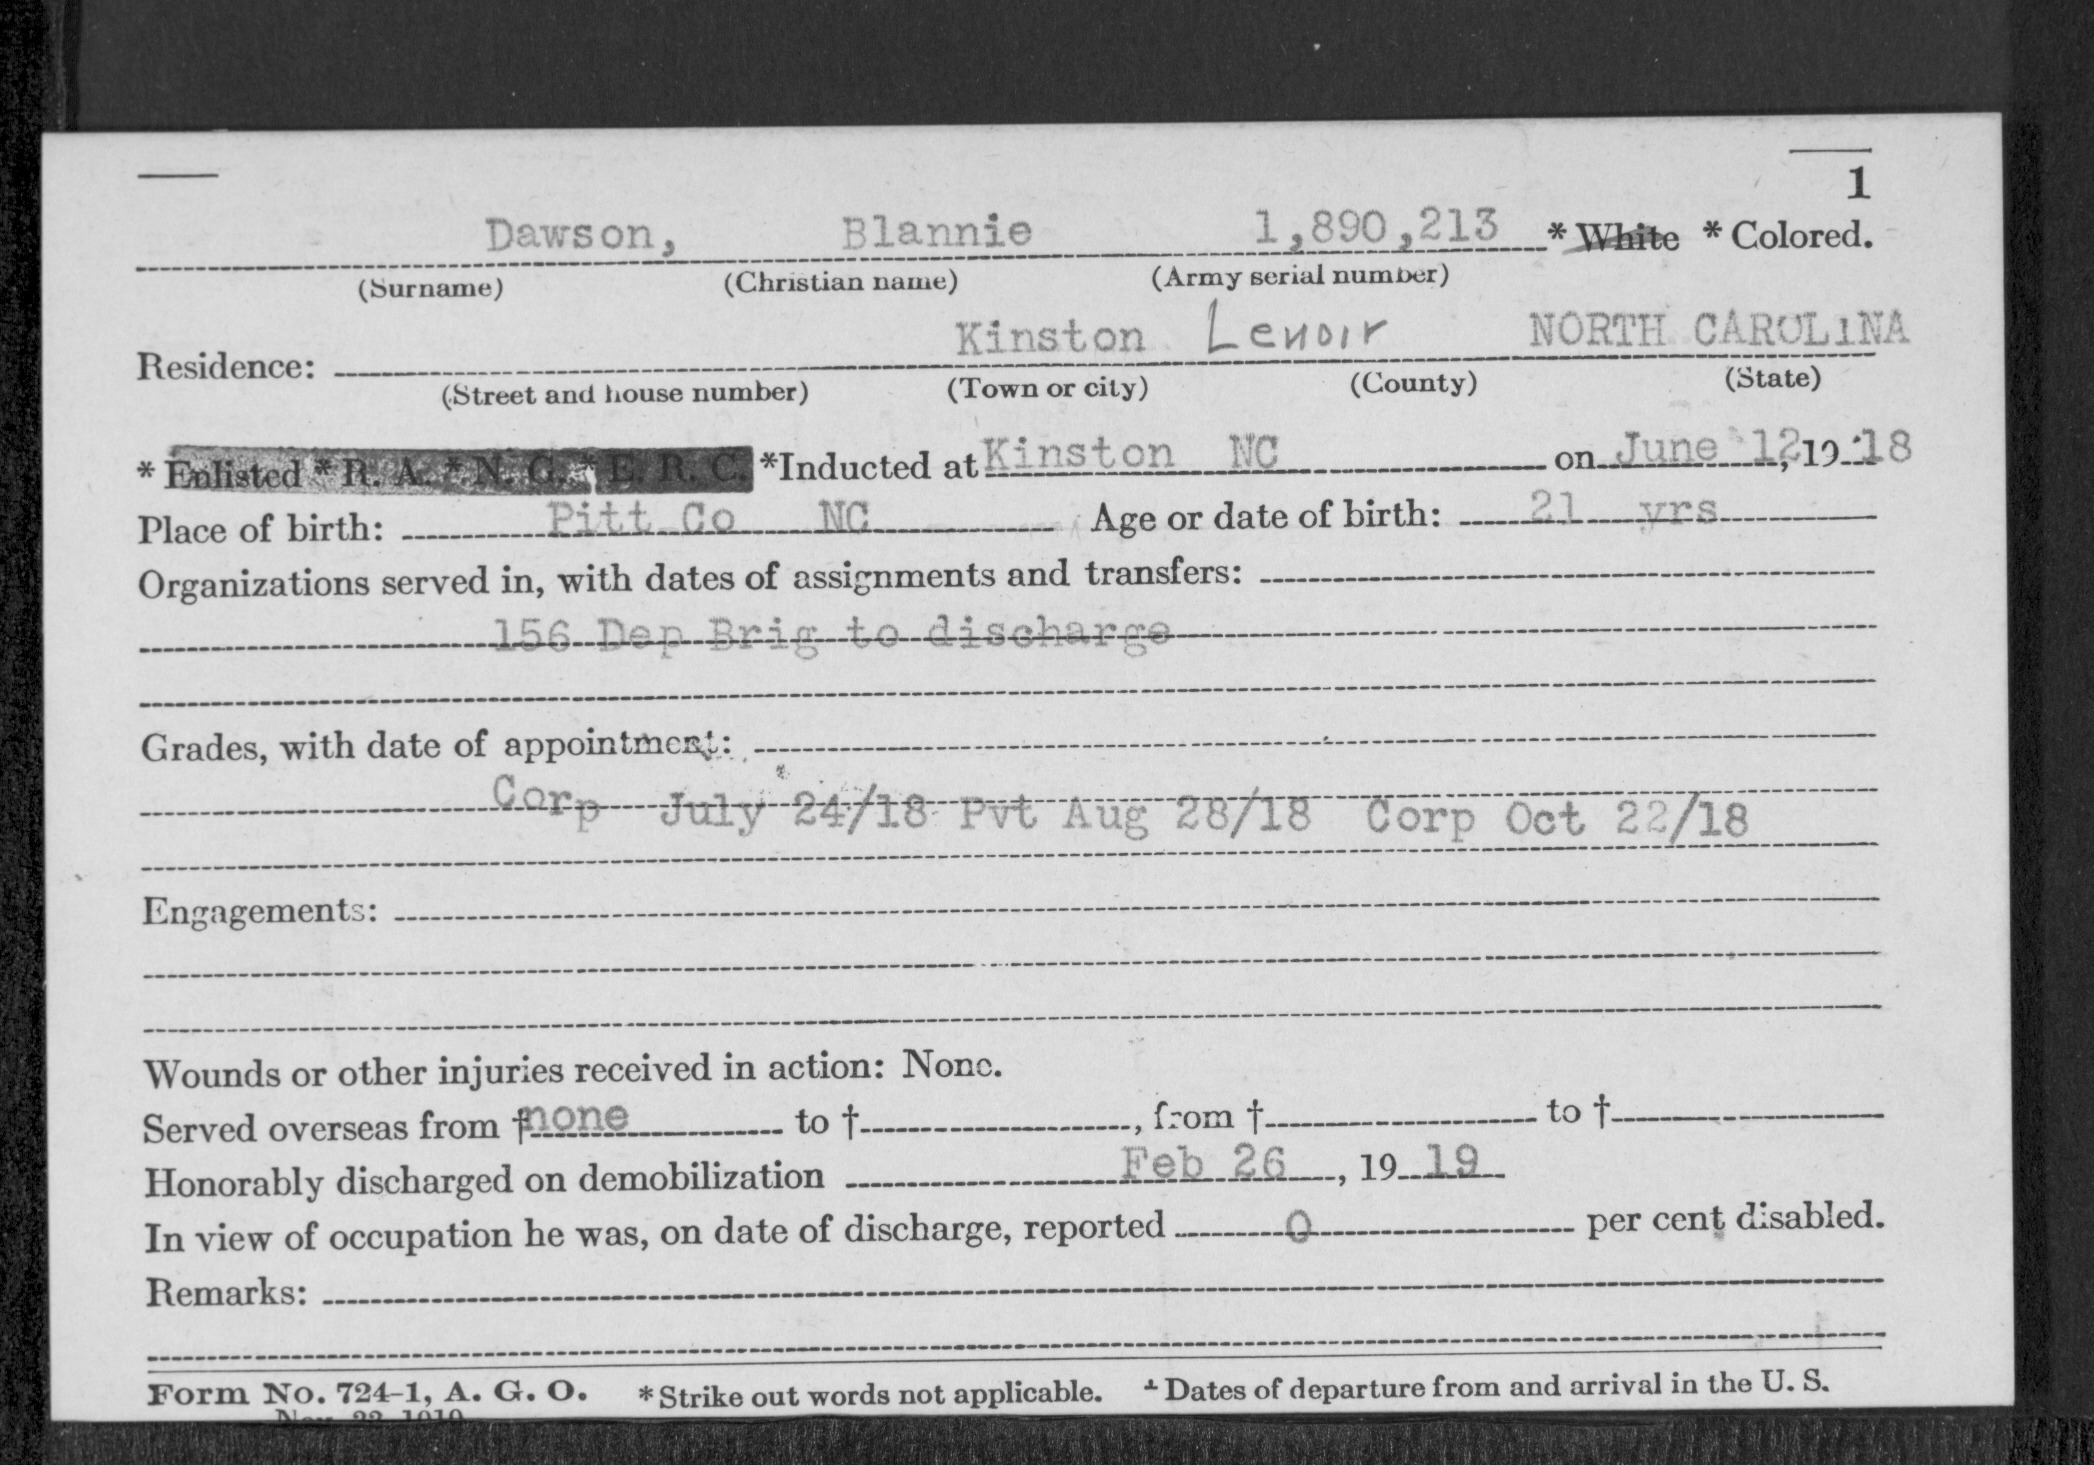 1
Dawson, Blannie 1,890,213 * White * Colored.
(Surname) (Christian name) (Army serial number)
Residence: Kinston Lenoir NORTH CAROLINA
(Street and house number) (Town or city) (County) (State)
* Enlisted * R. A. * N. G. * E. R. C. *Inducted at Kinston NC on June 12, 19 18
Place of birth: Pitt Co NC Age or date of birth: 21 yrs
Organizations served in, with dates of assignments and transfers:
156 Dep Brig to discharge
Grades, with date of appointment:
Corp July 24/18 Pvt Aug 28/18 Corp Oct 22/18
Engagements:
Wounds or other injuries received in action: None.
Served overseas from † none to †, from † to †
Honorably discharged on demobilization Feb 26, 19 19
In view of occupation he was, on date of discharge, reported 0 per cent disabled.
Remarks:
Form No. 724-1, A. G. O. * Strike out words not applicable. † Dates of departure from and arrival in the U. S.